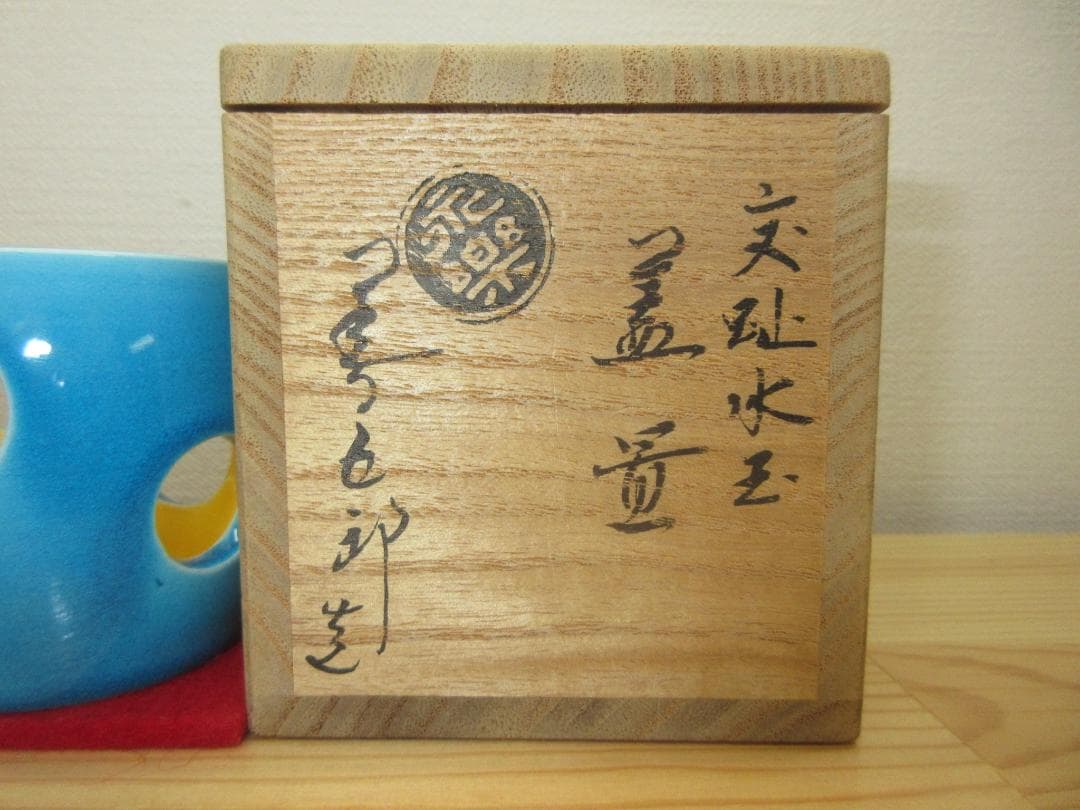 交趾水玉
蓋置
永樂
善五郎造